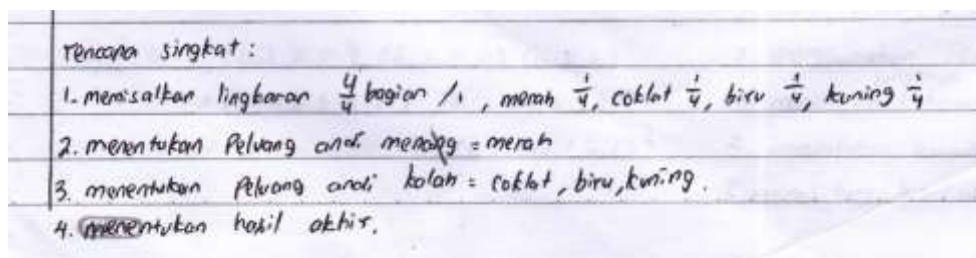 rencana singkat :
1. memisalkan lingkaran 4/4 bagian / 1 , merah 1/4, coklat 1/4, biru 1/4, kuning 1/4
2. menentukan Peluang andi menang = merah
3. menentukan Peluang andi kalah = coklat, biru, kuning.
4. menentukan hasil akhir.